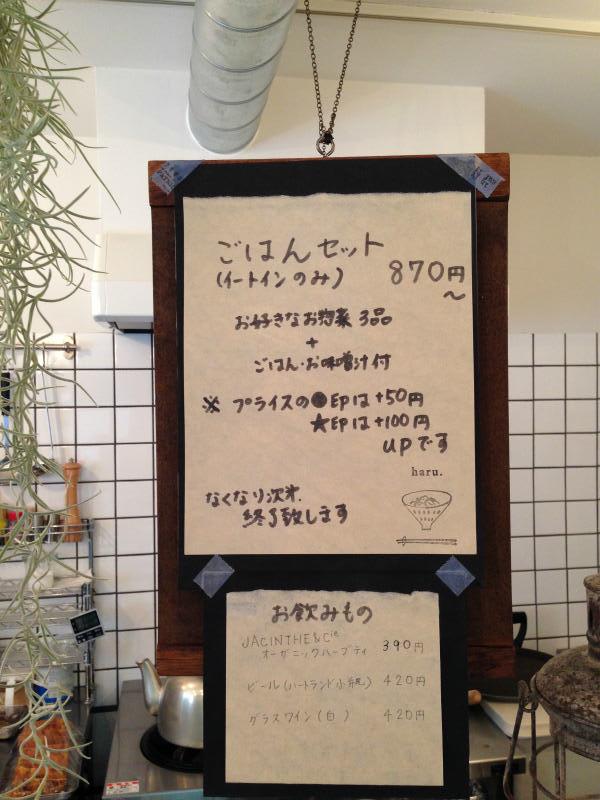 ごはんセット
(イートインのみ) 870円
～
お好きなお惣菜 3品
+
ごはん・お味噌汁付
※ プライスの●印は+50円
★印は+100円
upです
haru.
なくなり次第
終了致します
お飲みもの
JACINTHE&Cie
オーガニックハーブティ 390円
ビール(ハートランド小瓶) 420円
グラスワイン(白) 420円